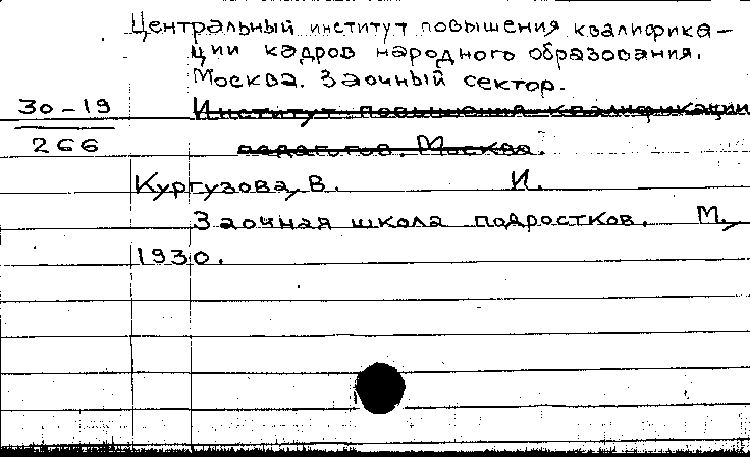 Центральный институт повышения квалифика-
ции кадров народного образования.
Москва. Заочный сектор.
30-19
266
Институт повышения квалификации
педагогов. Москва.
Кургузова, В. И.
Заочная школа подростков. М.,
1930.